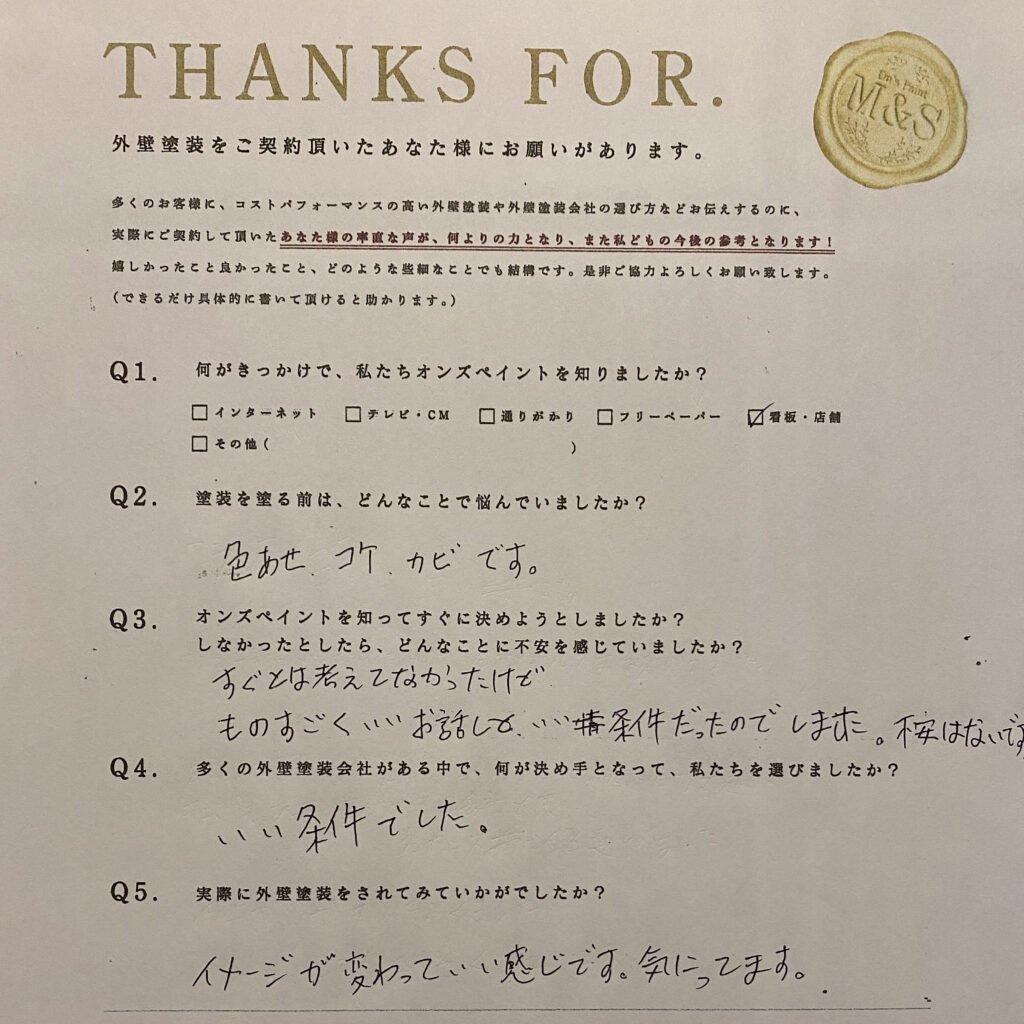 THANKS FOR.
On's Paint
M&S
外壁塗装をご契約頂いたあなた様にお願いがあります。
多くのお客様に、コストパフォーマンスの高い外壁塗装や外壁塗装会社の選び方などお伝えするのに、
実際にご契約して頂いたあなた様の率直な声が、何よりの力となり、また私どもの今後の参考となります!
嬉しかったこと良かったこと、どのような些細なことでも結構です。是非ご協力よろしくお願い致します。
(できるだけ具体的に書いて頂けると助かります。)
Q1. 何がきっかけで、私たちオンズペイントを知りましたか?
□インターネット □テレビ・CM □通りがかり □フリーペーパー ☑看板・店舗
□その他( )
Q2. 塗装を塗る前は、どんなことで悩んでいましたか?
色あせ、コケ、カビです。
Q3. オンズペイントを知ってすぐに決めようとしましたか?
しなかったとしたら、どんなことに不安を感じていましたか?
すぐとは考えてなかったけど
ものすごくいいお話しと、いい条件だったのでしました。不安はないです
Q4. 多くの外壁塗装会社がある中で、何が決め手となって、私たちを選びましたか?
いい条件でした。
Q5. 実際に外壁塗装をされてみていかがでしたか?
イメージが変わっていい感じです。気に入ってます。